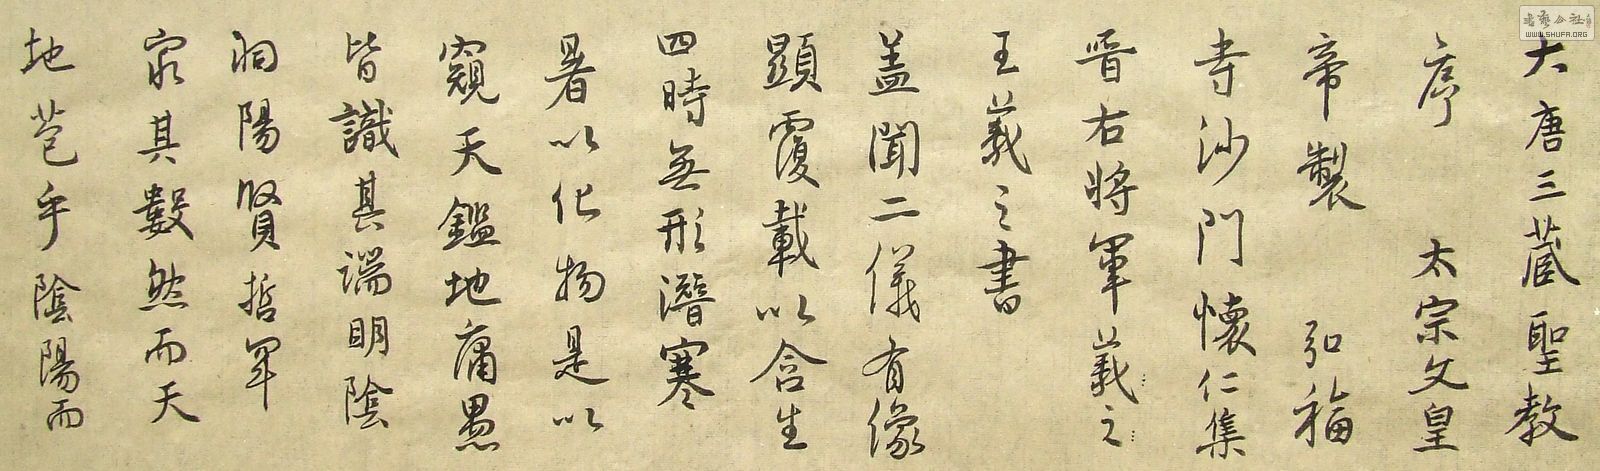 大唐三藏聖教
序 太宗文皇
帝製 弘福
寺沙門懷仁集
晉右將軍羲之
王羲之書
盖聞二儀有像
顯覆載以含生
四時無形潛寒
暑以化物是以
窺天鑑地庸愚
皆識其端明陰
洞陽賢哲罕
窮其數然而天
地苞乎陰陽而
书艺公社
WWW.SHUFA.ORG